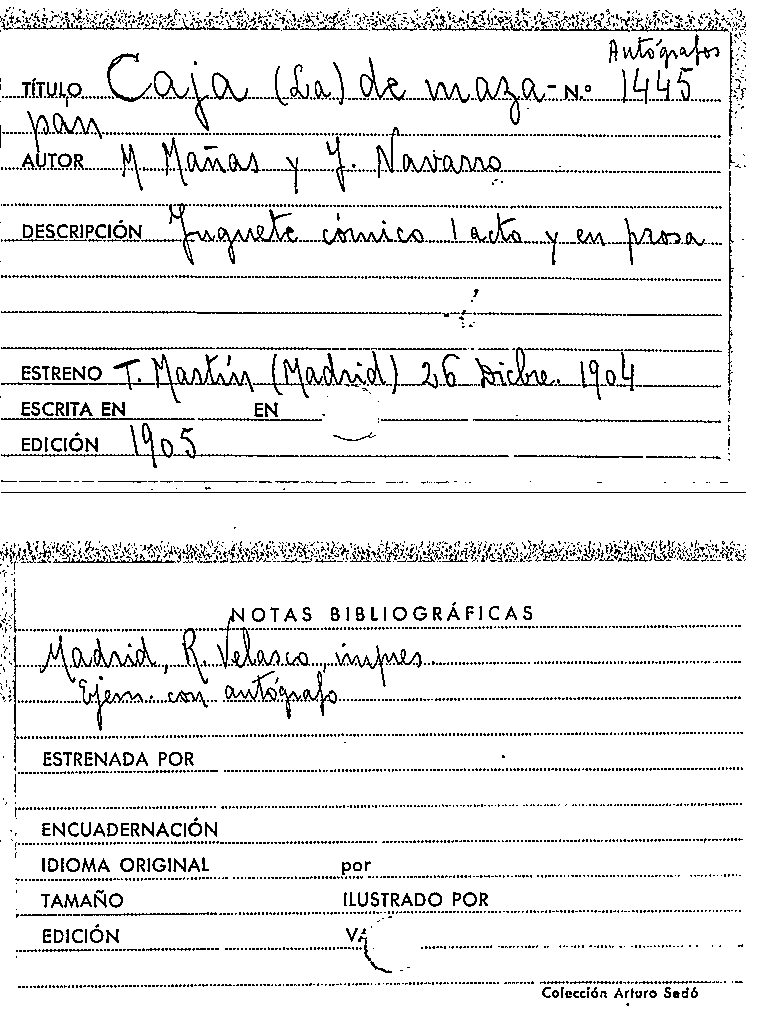 Autógrafos
TÍTULO Caja (La) de maza- N.º 1445
pan
AUTOR M. Mañas y J. Navarro
DESCRIPCIÓN Juguete cómico 1 acto y en prosa
ESTRENO T. Martín (Madrid) 26 Dicbre. 1904
ESCRITA EN EN
EDICIÓN 1905
NOTAS BIBLIOGRÁFICAS
Madrid, R. Velasco, impres.
Ejem. con autógrafo
ESTRENADA POR
ENCUADERNACIÓN
IDIOMA ORIGINAL por
TAMAÑO ILUSTRADO POR
EDICIÓN VA
Colección Arturo Sedó